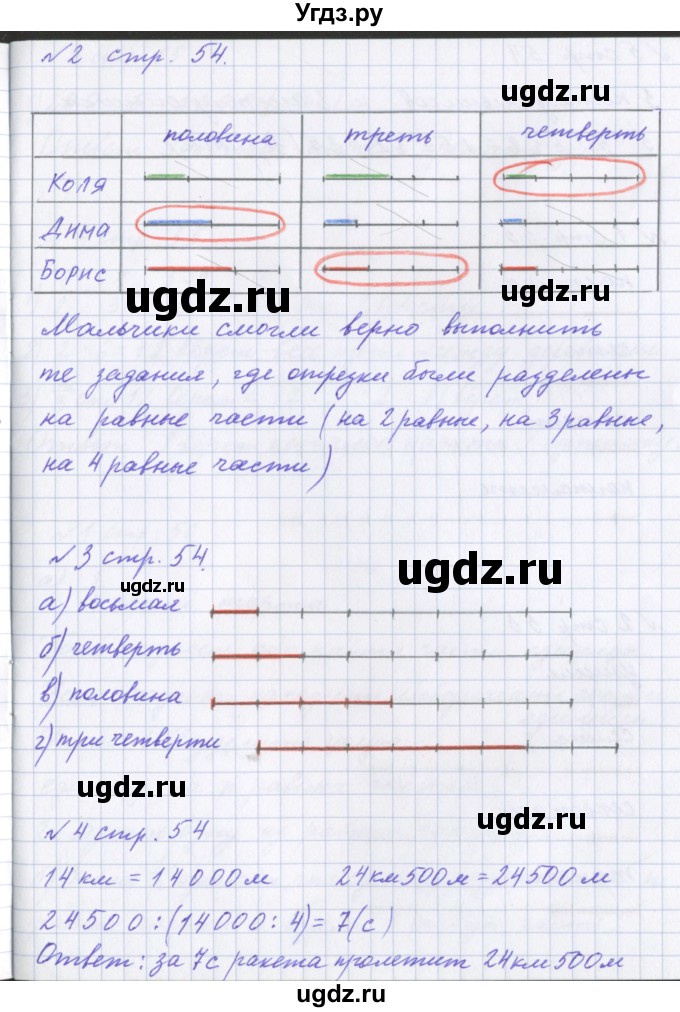 Угдз.ру
№2 стр. 54.
ugdz.ru
половина треть четверть
Коля
Дима
Борис
ugdz.ru ugdz.ru
Мальчики смогли верно выполнить
те задания, где отрезки были разделены
на равные части (на 2 равные, на 3 равные,
на 4 равные части)
№3 стр. 54.
ugdz.ru ugdz.ru
а) восьмая
б) четверть
в) половина
г) три четверти
ugdz.ru
№4 стр. 54 ugdz.ru
14 км = 14000 м 24 км 500 м = 24500 м
24500 : (14000 : 4) = 7 (с)
Ответ: за 7с ракета пролетит 24 км 500 м
ugdz.ru